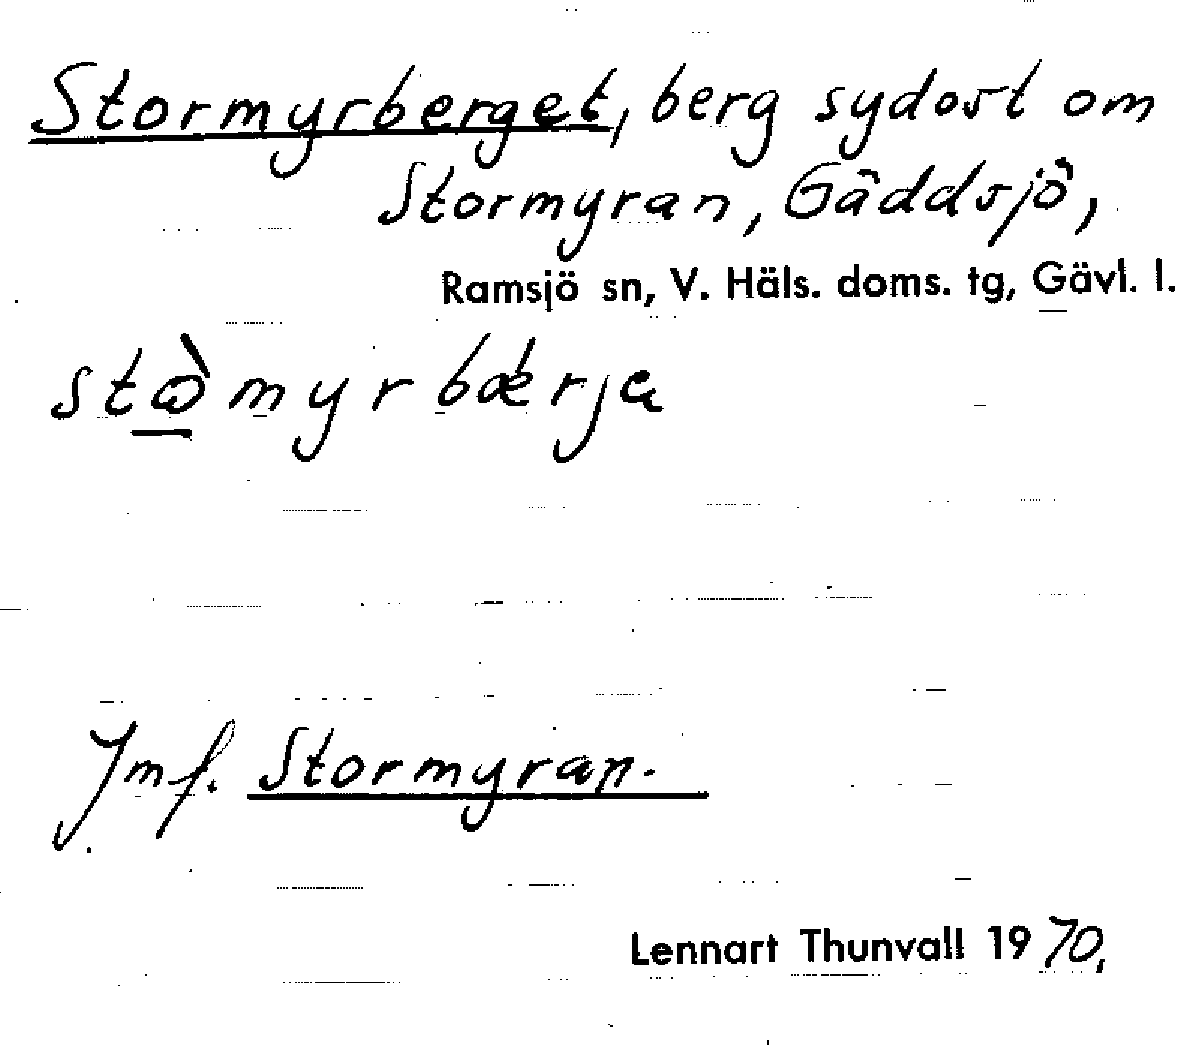 Stormyrberget, berg sydost om
Stormyran, Gäddsjö,
Ramsjö sn, V. Häls. doms. tg, Gävl. l.
Jmf. Stormyran.
Lennart Thunvall 1970.